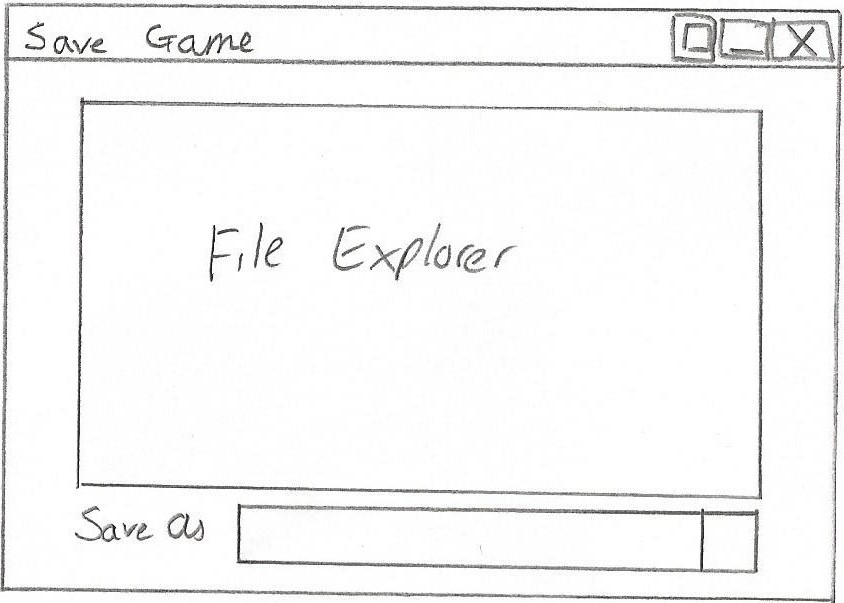 Save Game
File Explorer
Save as